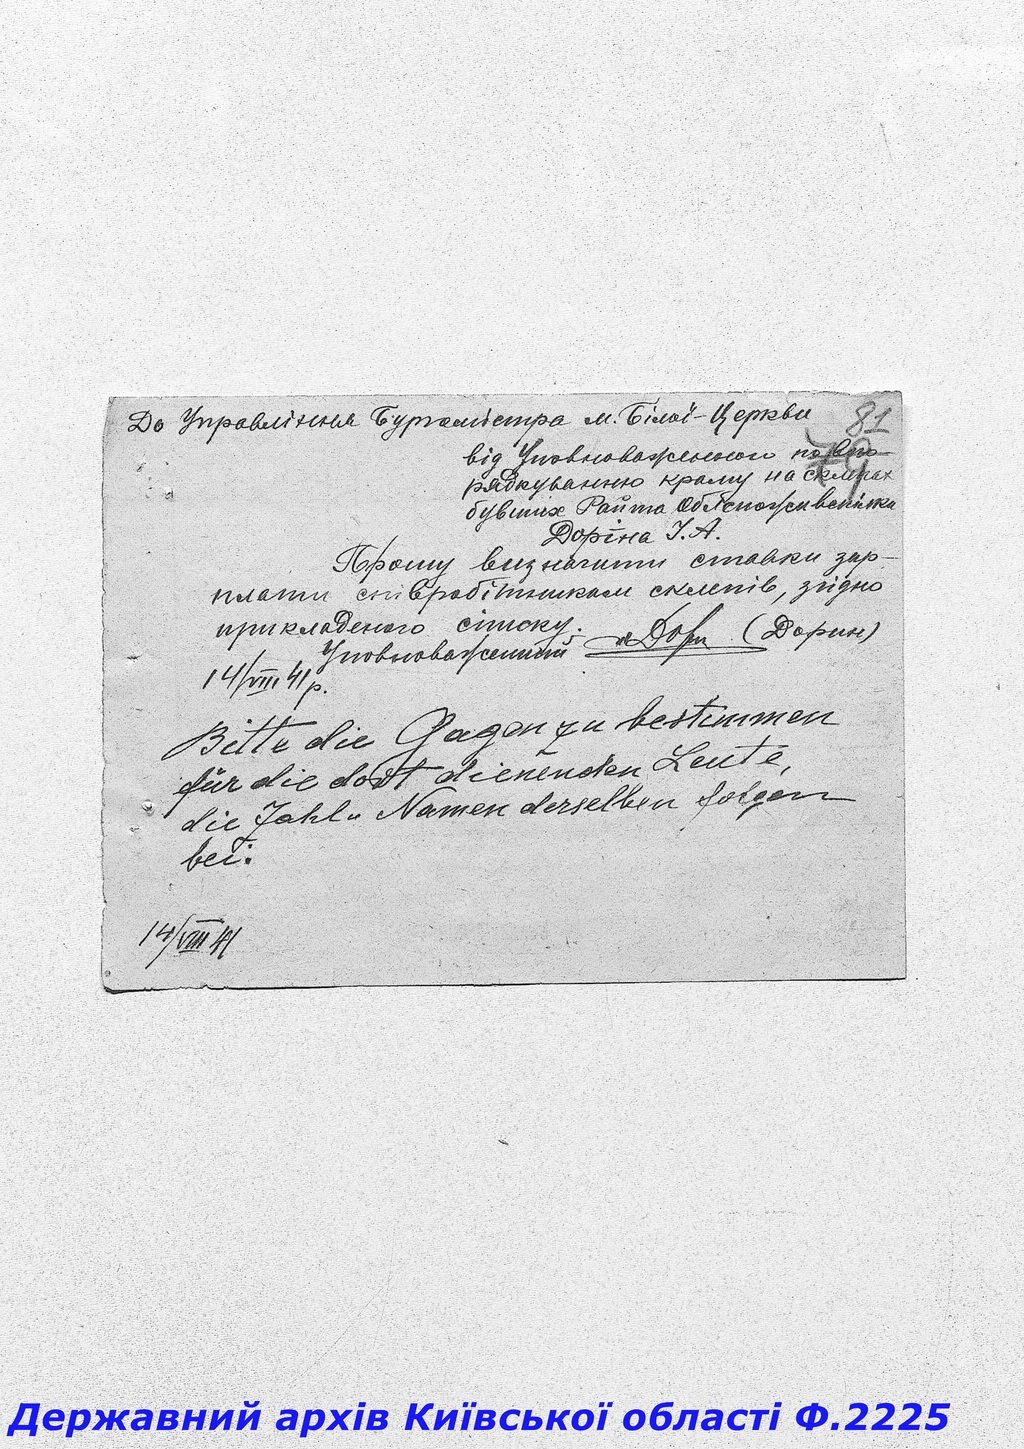 До Управління Бургомістра м. Білої-Церкви 81
79
від Уповноваженого по впо-
рядкуванню краму на склепах
бувших Рай та Облспоживспілки
Доріна І.А.
Прошу визначити ставки зар-
плати співробітникам склепів, згідно
прикладеного списку.
Уповноважений (Дорин)
14/VIII 41 р.
Bitte die Gagen zu bestimmen
für die dort dienenden Leute,
die Zahl u Namen derselben folgen
bei:
14/VIII 41
Державний архів Київської області Ф.2225